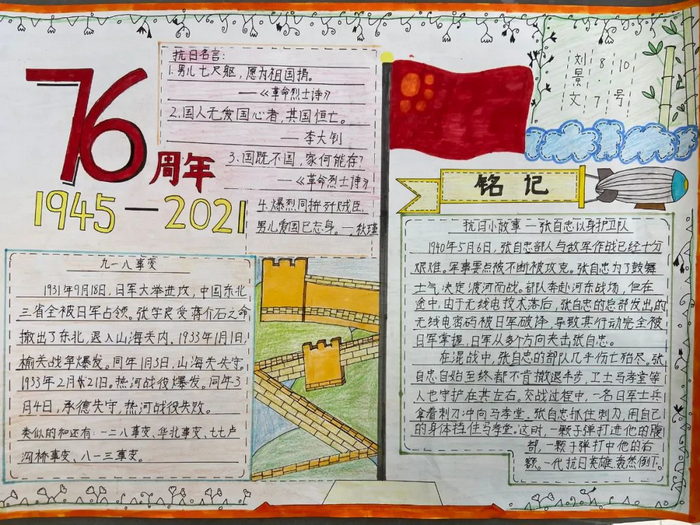 76周年
1945—2021
抗日名言:
1.男儿七尺躯,愿为祖国捐。
——《革命烈士诗》
2.国人无爱国心者,其国恒亡。
——李大钊
3.国既不国,家何能存?
——《革命烈士诗》
4.爆烈同拼歼贼臣,
男儿爱国已忘身。—秋瑾
九一八事变
1931年9月18日,日军大举进攻,中国东北
三省全被日军占领。张学良受蒋介石之命
撤出了东北,退入山海关内,1933年1月1日
榆关战争爆发。同年1月3日,山海关失守。
1933年2月21日。热河战役爆发。同年3
月4日,承德失守,热河战役失败。
类似的和还有:一二八事变、华北事变、七七卢
沟桥事变、八一三事变。
刘景文
8 7
10号
铭记
抗日小故事—张自忠以身护卫队
1940年5月6日,张自忠部人与敌军作战已经十分
艰难。军事要点被不断被攻克。张自忠为了鼓舞
士气,决定渡河而战。部队奔赴河东战场,但在
途中,由于无线电技术落后,张自忠的总部发出的
无线电密码被日军破译,导致其行动完全被
日军掌握,日军从多个方向夹击张自忠。
在混战中,张自忠的部队几乎伤亡殆尽,张
自忠自始至终都不肯撤退半步,卫士马孝堂等
人也守护在其左右。交战过程中,一名日军士兵
拿着刺刀冲向马孝堂,张自忠抓住刺刀,用自己
的身体挡住马孝堂。这时,一颗子弹打进他的腹
部,一颗子弹打中他的右
额。一代抗日英雄轰然倒下。